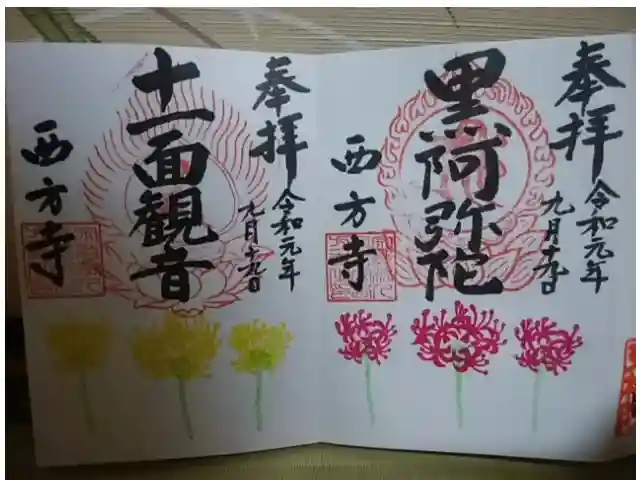 奉拝
令和元年
九月十九日
黒阿弥陀
西方寺
奉拝
令和元年
九月十九日
十一面観音
西方寺